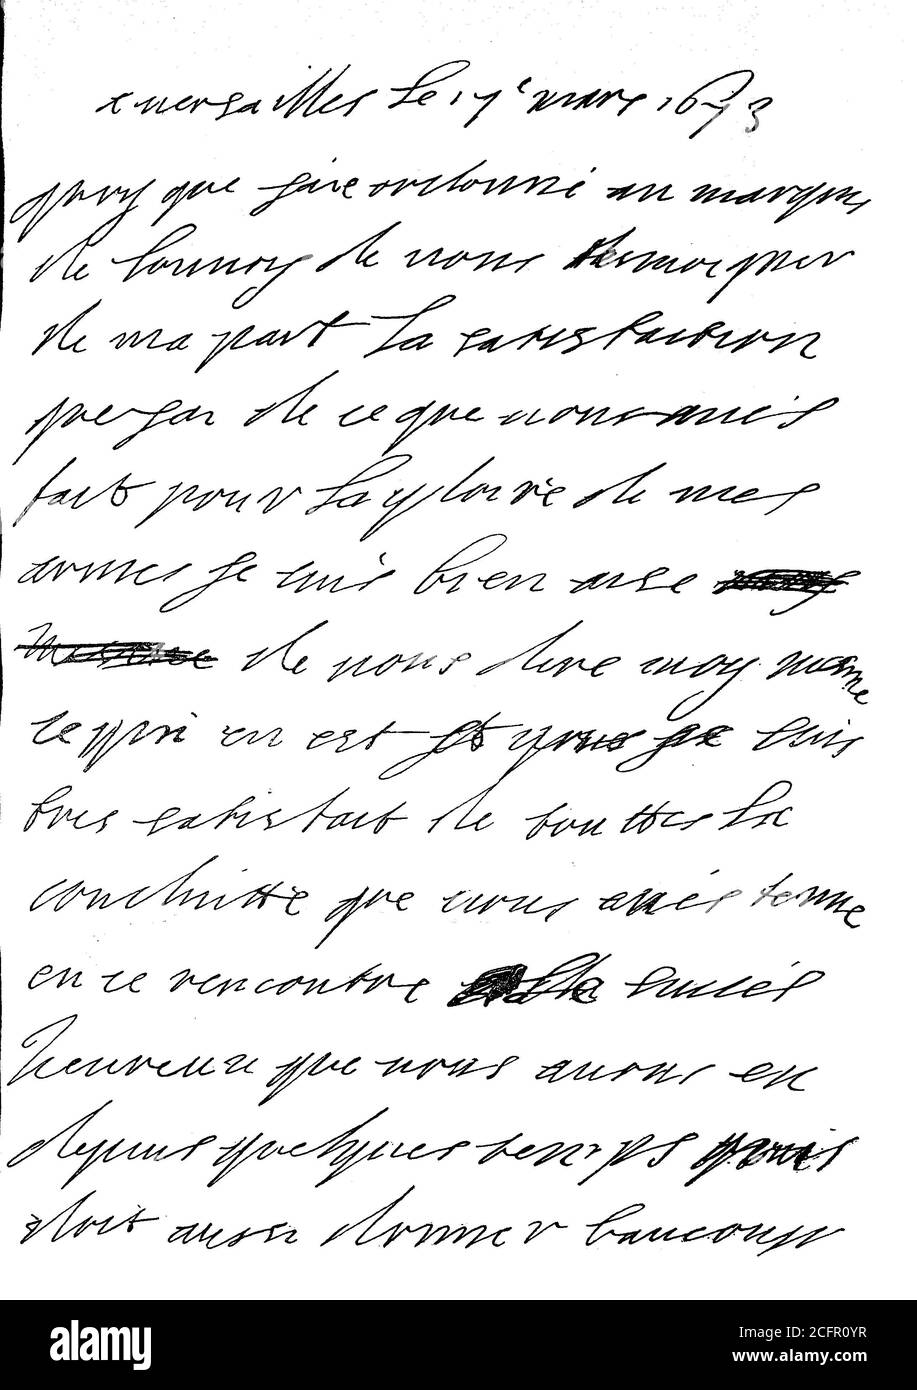 a versailles le 17e mars 1673
quoy que jaie ordonné au marquis
de lounoy de vous temoigner
de ma part la satisfaction
que jai de ce que vous aués
fait pour la gloire de mes
armes je suis bien aise
de vous dire moy mesme
ce qui en est et que je suis
tres satisfait de touttes la
conduitte que vous aués tenue
en ce rencontre le succés
heureux que nous auons eu
depuis quelques temps vous
doit aussi donner baucoup
alamy
Image ID: 2CFR0YR
www.alamy.com